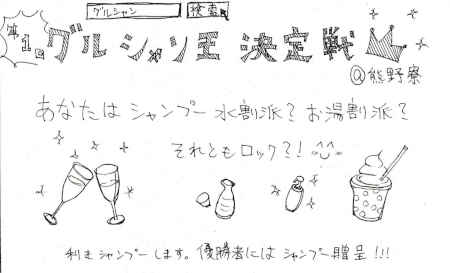 グルシャン 検索
第1回グルシャン王決定戦
@熊野寮
あなたは シャンプー 水割派? お湯割派?
それとも ロック?!
利きシャンプーします。優勝者には シャンプー贈呈!!!